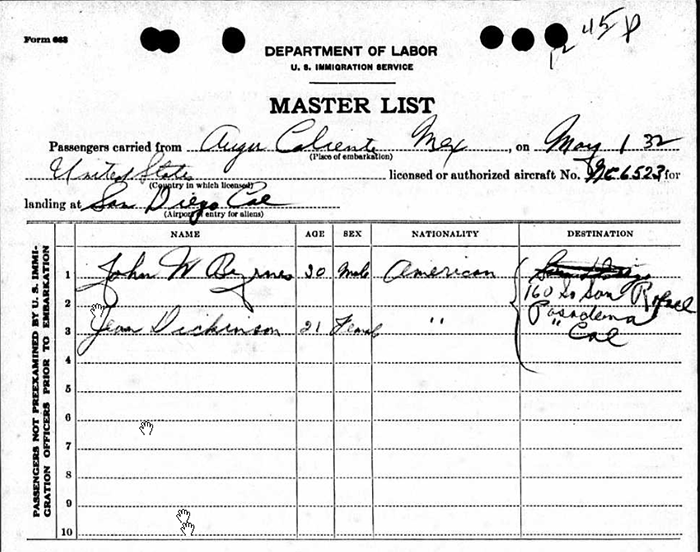 Form 663
12 45 P
DEPARTMENT OF LABOR
U. S. IMMIGRATION SERVICE
MASTER LIST
Passengers carried from Agua Caliente Mex, on May 1 32
(Place of embarkation)
United States licensed or authorized aircraft No. NC6523 for
(Country in which licensed)
landing at San Diego Cal
(Airport of entry for aliens)
NAME AGE SEX NATIONALITY DESTINATION
PASSENGERS NOT PREEXAMINED BY U. S. IMMI-
GRATION OFFICERS PRIOR TO EMBARKATION
1 John W Byrnes 30 Male American
160 So San Rafael
2
Pasadena
3 Jean Dickinson 21 Femal " "
" Cal
4
5
6
7
8
9
10